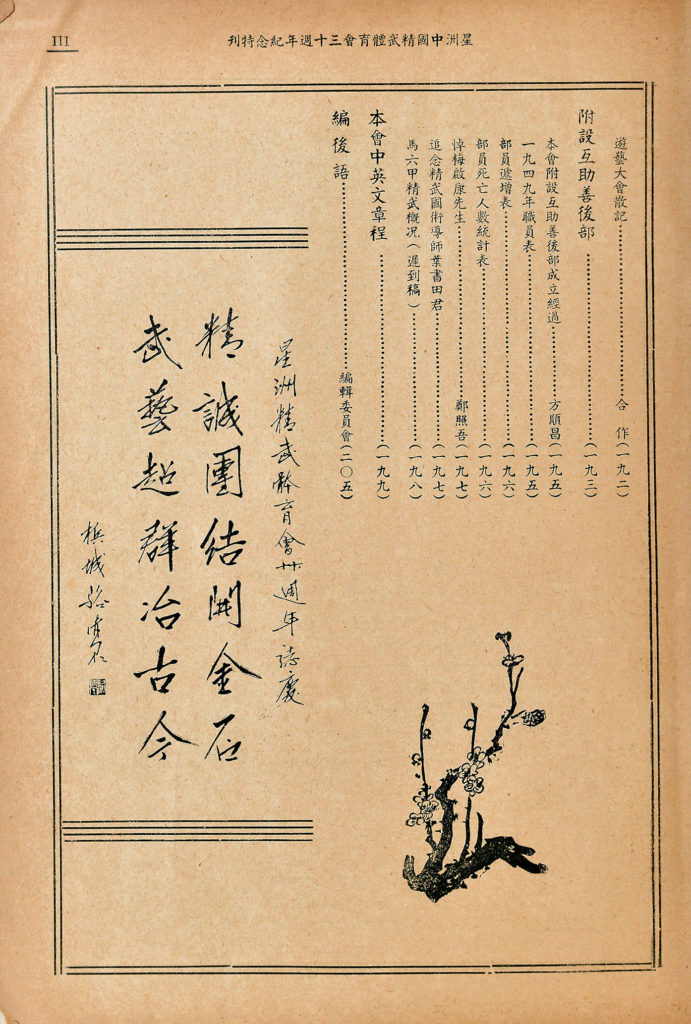 III
星洲中國精武體育會三十週年紀念特刊
遊藝大會散記……合作（一九二）
附設互助善後部……（一九三）
本會附設互助善後部成立經過……方順昌（一九五）
一九四九年職員表……（一九五）
部員遞增表……（一九六）
部員死亡人數統計表……（一九六）
悼梅啟康先生……鄭照吾（一九七）
追念精武國術導師葉書田君……（一九七）
馬六甲精武概况（遲到稿）……（一九八）
本會中英文章程……（一九九）
編後語……編輯委員會（二〇五）
星洲精武體育會卅週年誌慶
精誠團結開金石
武藝超群冶古今
檳城駱